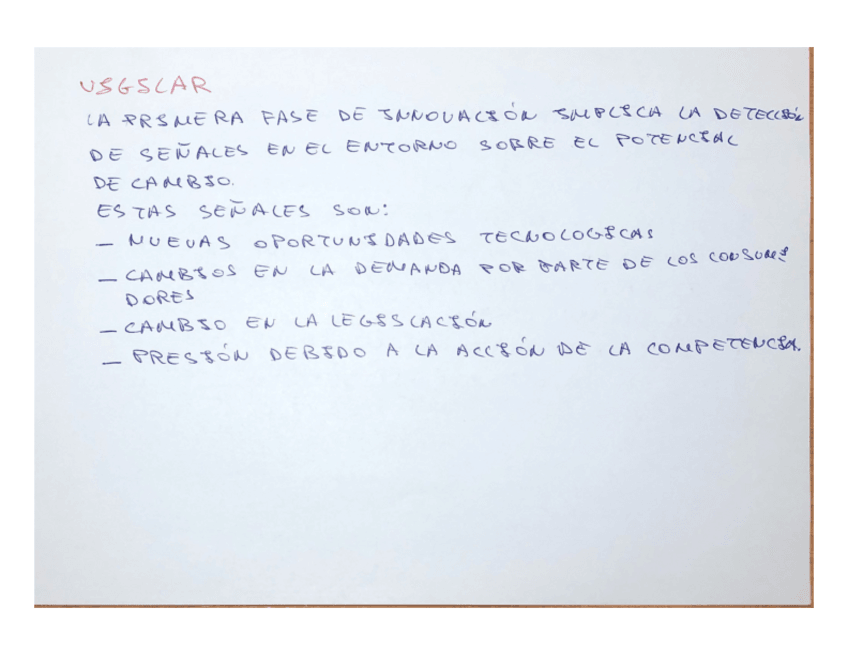 VIGILAR
LA PRIMERA FASE DE INNOVACIÓN IMPLICA LA DETECCIÓN
DE SEÑALES EN EL ENTORNO SOBRE EL POTENCIAL
DE CAMBIO.
ESTAS SEÑALES SON:
- NUEVAS OPORTUNIDADES TECNOLOGICAS
- CAMBIOS EN LA DEMANDA POR PARTE DE LOS CONSUMI
DORES
- CAMBIO EN LA LEGISLACIÓN
- PRESIÓN DEBIDO A LA ACCIÓN DE LA COMPETENCIA.